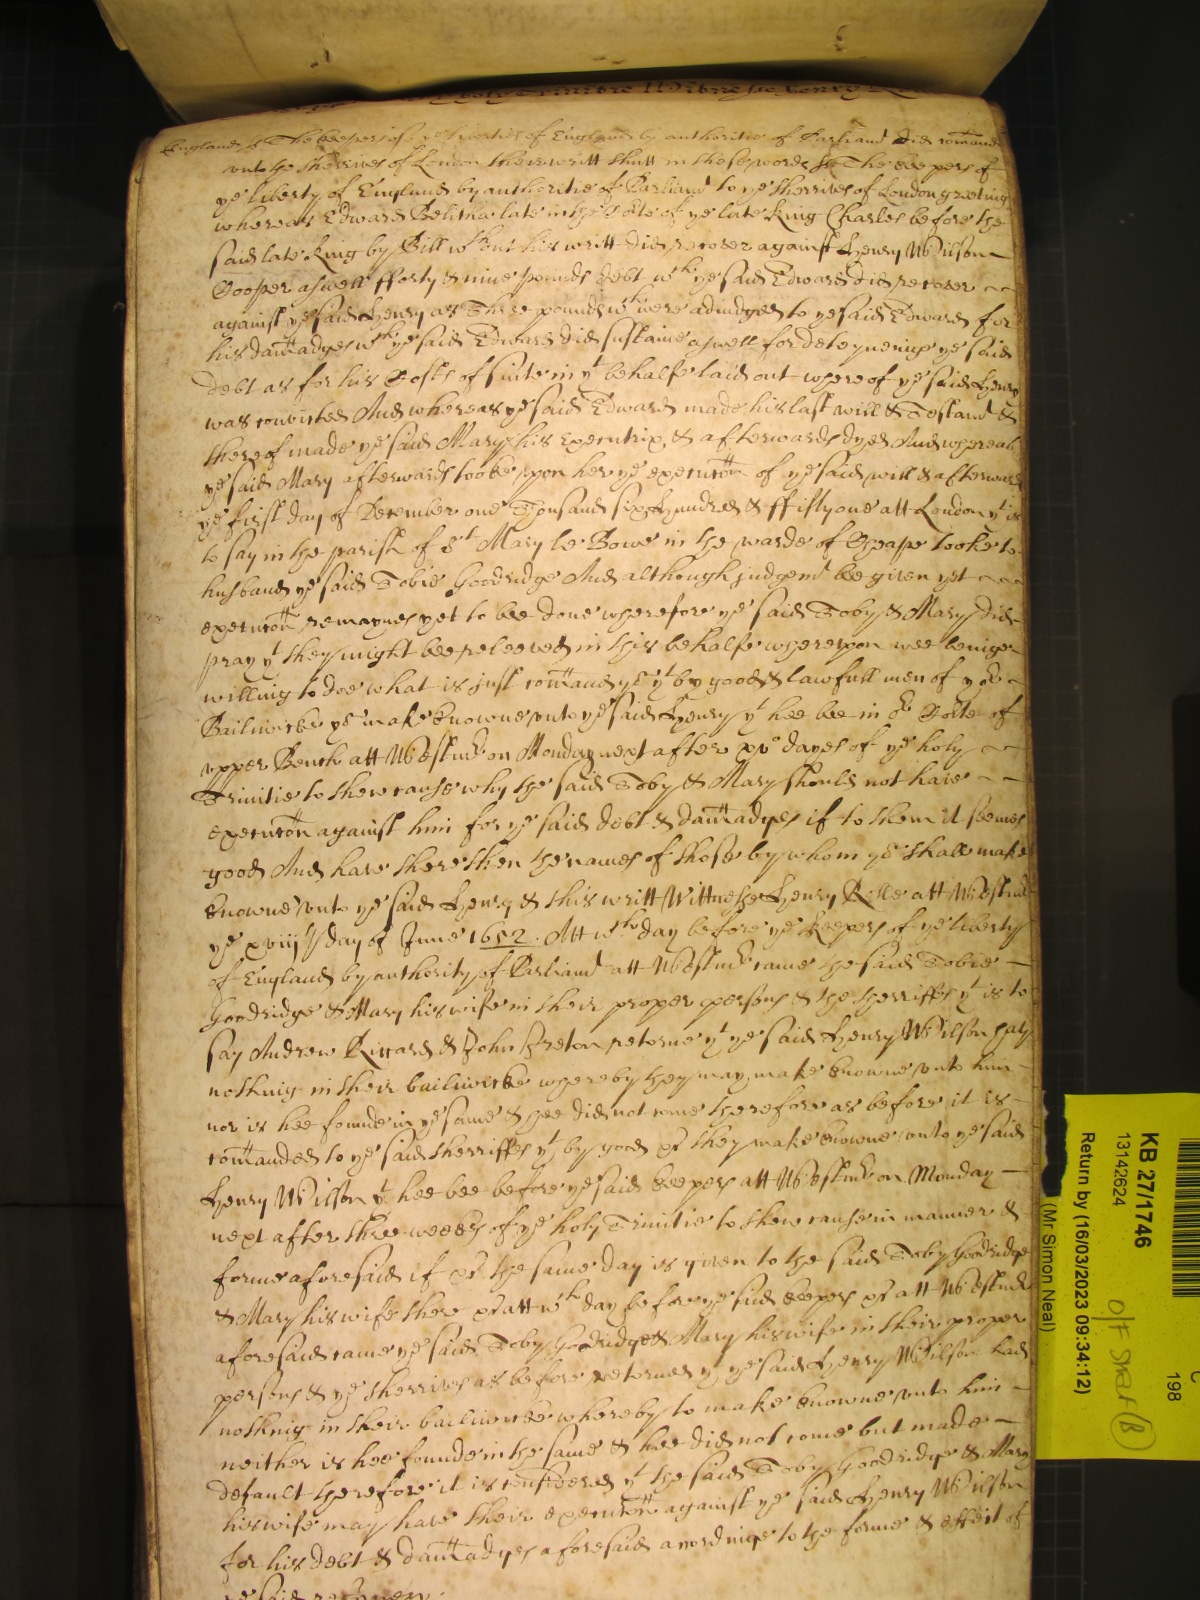 England ss The keepers of ye liberties of England by authoritie of Parliamt did comand
unto the Sherrives of London theire writt shutt in these words ss The keepers of
ye liberty of England by authoritie of Parliamt to ye Sherrives of London greeting
whereas Edward Belitha late in the Corte of ye late King Charles before the
said late King by Bill wthout his writt did recover against Henry Willson
Cooper aswell fforty & nine pounds debt wch ye said Edward did recover
against ye said Henry as Three pounds wch were adiudged to ye said Edward for
his damadges wch ye said Edward did sustaine aswell for deteyneinge ye said
debt as for his Costs of suite in yt behalfe laid out whereof ye said Henry
was convicted And whereas ye said Edward made his last will & Testamt &
thereof made ye said Mary his Executrix & afterwards dyed And whereas
ye said Mary afterwards tooke upon her ye execucon of ye said will & afterwards
ye first day of December one Thousand six Hundred & ffifty one att London yt is
to say in the parish of St Mary le Bowe in the warde of Cheape tooke to
husband ye said Tobie Goodridge And although judgemt bee given yet
execucon remaynes yet to bee done wherefore ye said Toby & Mary did
pray yt they might bee releeved in this behalfe whereupon wee beinge
willing to doe what is just comand ye yt by good & lawfull men of yor
Bailiwicke ye make knowne unto ye said Henry yt hee bee in or Corte of
upper Bench att Westmr on Monday next after xv dayes of ye holy
Trinitie to shew cause why the said Toby & Mary should not have
execucon against him for ye said debt & damadges if to them it seemes
good And have there then the names of those by whom ye shall make
knowne unto ye said Henry & this writt Wittnesse Henry Rolle att Westmr
ye xviijth day of June 1652. Att wch day before ye keepers of ye liberty
of England by authority of Parliamt att Westmr came the said Tobie
Goodridge & Mary his wife in their proper persons & the sherriffes yt is to
say Andrew Riccard & John Ireton retorne yt ye said Henry Willson hath
nothing in their bailiwicke whereby they may make knowne unto him
nor is hee founde in ye same & hee did not come therefore as before it is
comanded to ye said Sherriffes yt by good &c they make knowne unto ye said
Henry Willson yt hee bee before ye said keepers att Westmr on Monday
next after three weekes of ye holy Trinitie to shew cause in manner &
forme aforesaid if &c the same day is given to the said Toby Goodridge
& Mary his wife there &c att wch day before ye said keepers &c att Westmr
aforesaid came ye said Toby Goodridge & Mary his wife in their proper
persons & ye Sherrives as before retorned yt ye said Henry Willson had
nothing in their bailiwicke whereby to make knowne unto him
neither is hee founde in the same & hee did not come but made
default therefore it is considered yt the said Toby Goodridge & Mary
his wife may have their execucon against ye said Henry Willson
for his debt & damadges aforesaid accordinge to the forme & effect of
ye said recovery.
198
O/F
KB 27/1746
13142624
Return by (16/03/2023 09:34:12)
(Mr Simon Neal)